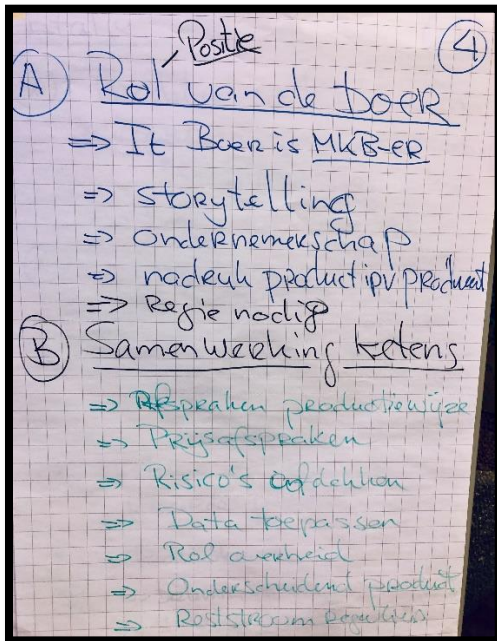 Positie
4
A Rol van de boer
=> It Boer is MKB-er
=> storytelling
=> ondernemerschap
=> nadruk product ipv producent
=> Regie nodig
B Samenwerking ketens
=> Afspraken productiewijze
=> Prijsafspraken
=> Risico's afdekken
=> Data toepassen
=> Rol overheid
=> Onderscheidend product
=> Reststroom